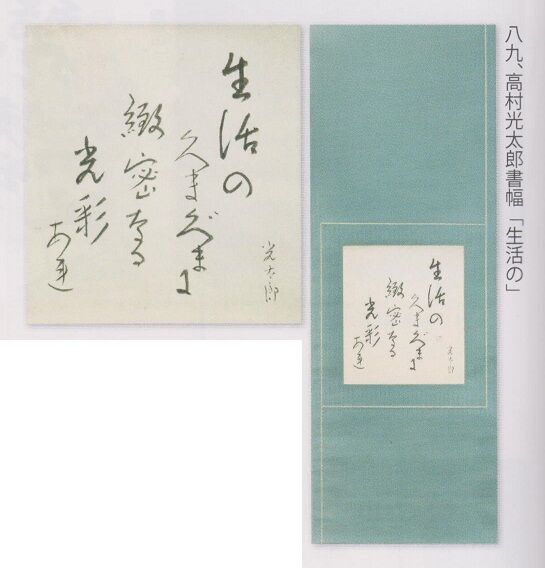 八九、高村光太郎書幅「生活の」
生活の
くまぐまに
緻密なる
光彩
あれ
光太郎
生活の
くまぐまに
緻密なる
光彩
あれ
光太郎